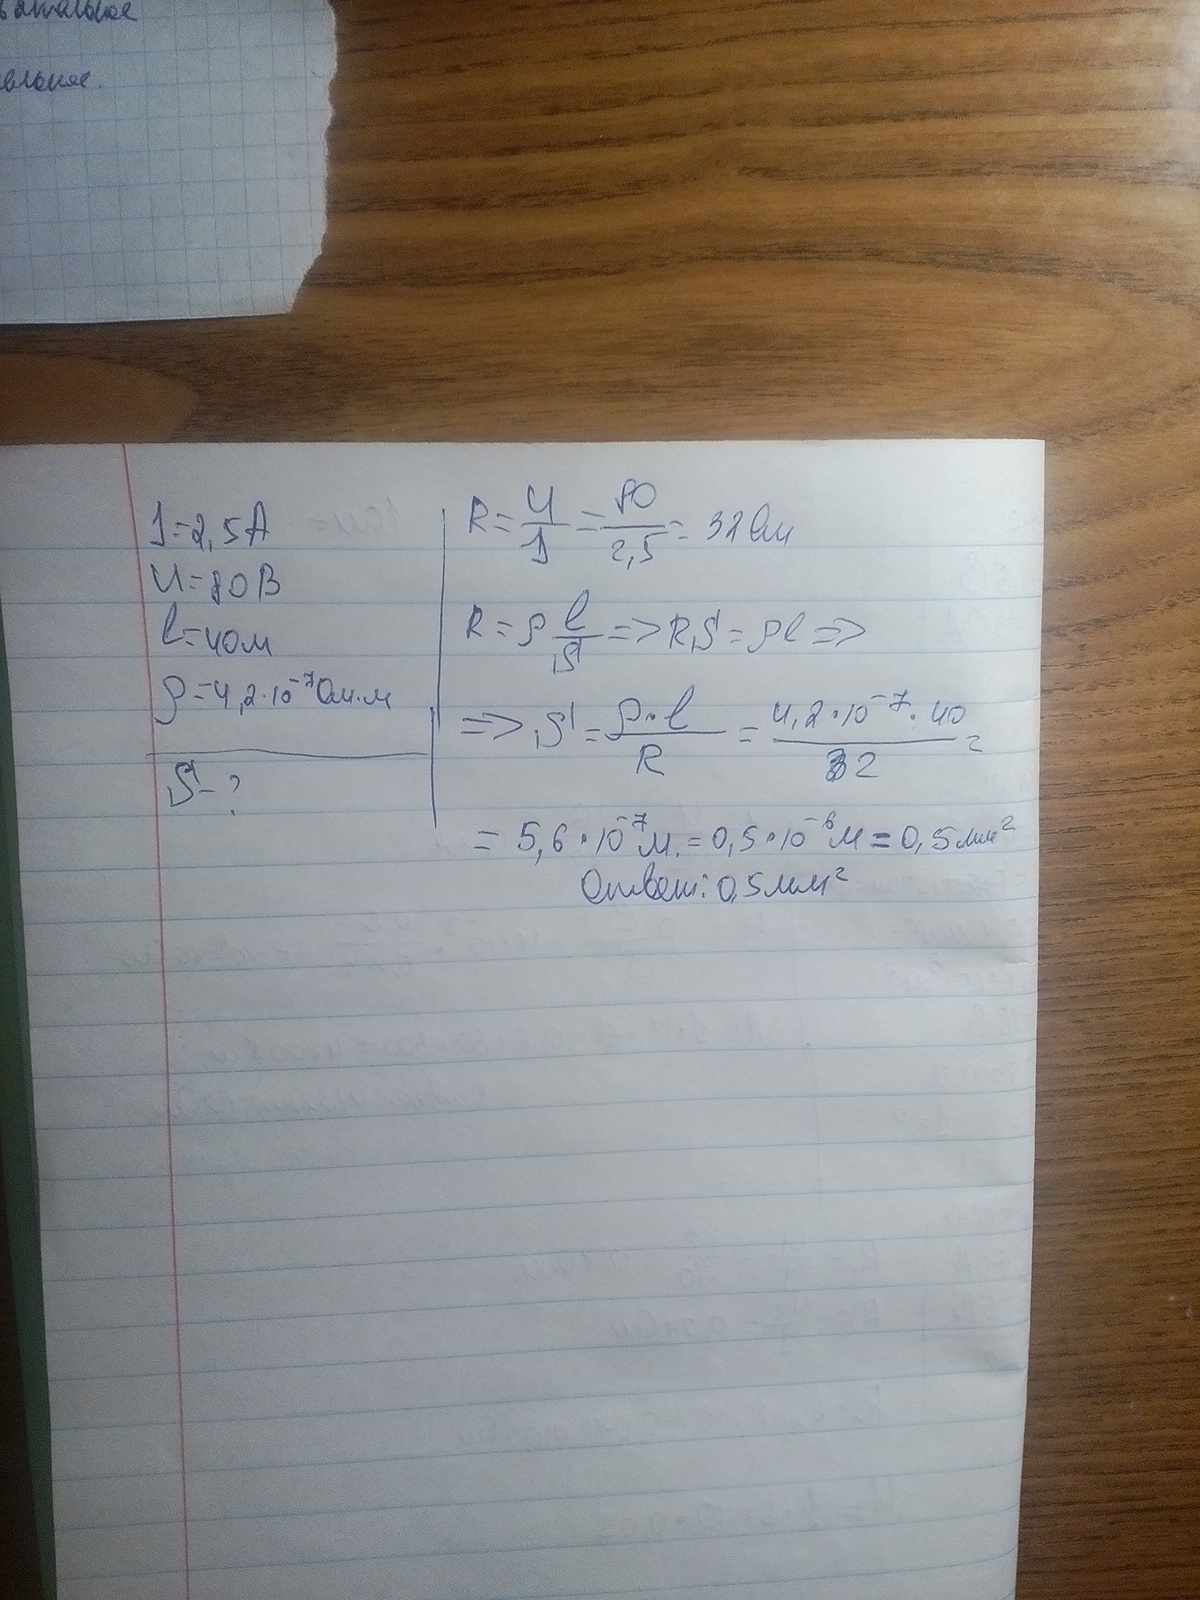 I=2,5А
U=80В
l=40м
ρ=4,2·10⁻⁷Ом·м
S-?
R=U/I=80/2,5=32Ом
R=ρ l/S=>RS=ρl=>
=>S=ρ·l/R=4,2·10⁻⁷·40/32=
=5,6·10⁻⁷м.=0,5·10⁻⁶м=0,5мм²
Ответ: 0,5мм²